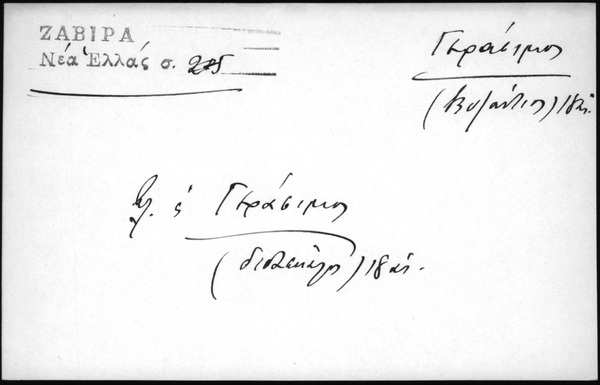 ΖΑΒΙΡΑ
Νέα Ἑλλάς σ. 205
Γεράσιμος
(Βυζάντιος) 18 αἰ.
βλ. ὁ Γεράσιμος
(διδάσκαλος) 18 αἰ.